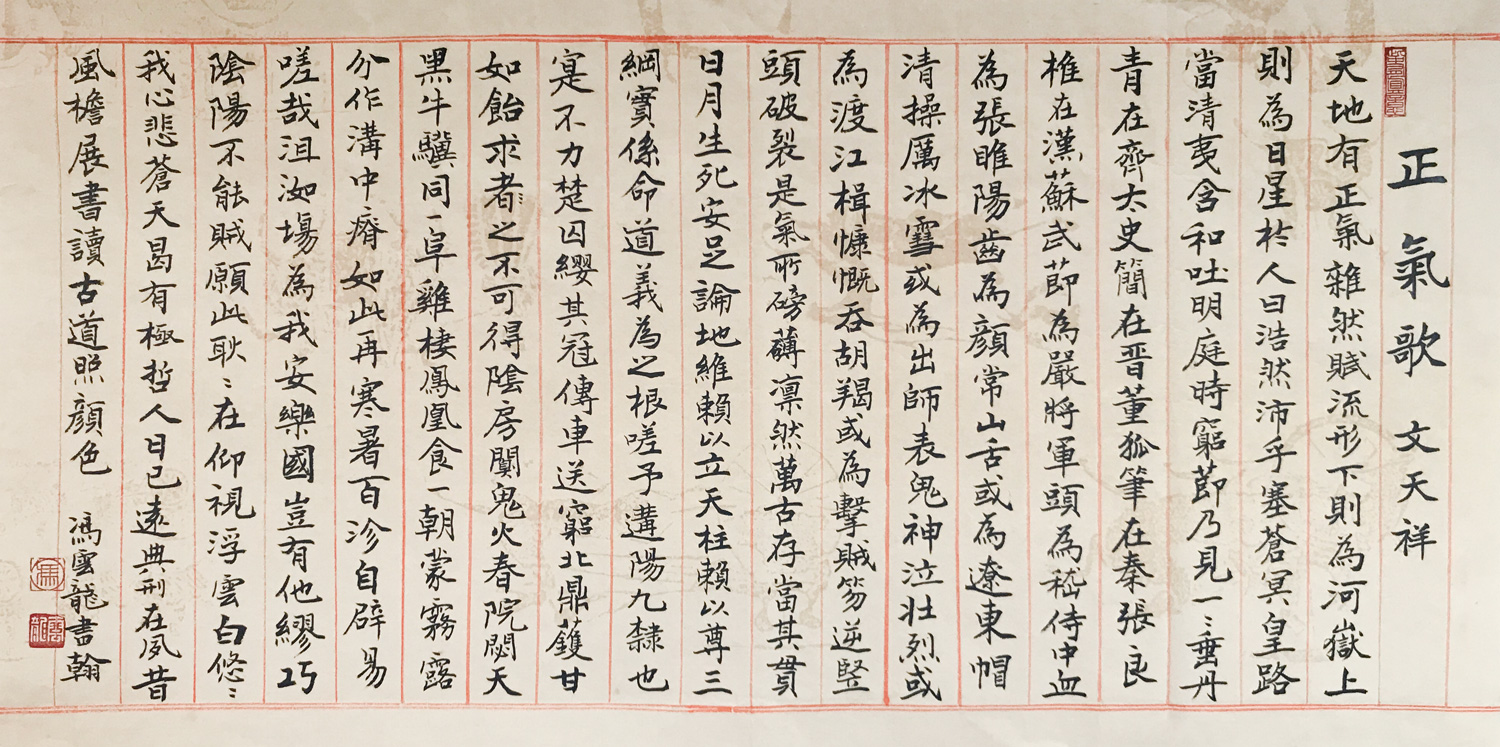 正氣歌 文天祥
天地有正氣雜然賦流形下則為河嶽上
則為日星於人曰浩然沛乎塞蒼冥皇路
當清夷含和吐明庭時窮節乃見一〻垂丹
青在齊太史簡在晋董狐筆在秦張良
椎在漢蘇武節為嚴將軍頭為嵇侍中血
為張睢陽齒為顏常山舌或為遼東帽
清操厲冰雪或為出師表鬼神泣壯烈或
為渡江楫慷慨吞胡羯或為擊賊笏逆豎
頭破裂是氣所磅礴凛然萬古存當其貫
日月生死安足論地維賴以立天柱賴以尊三
綱實係命道義為之根嗟予遘陽九隸也
寔不力楚囚纓其冠傳車送窮北鼎鑊甘
如飴求者之不可得陰房闃鬼火春院閟天
黑牛驥同一皁雞棲鳳凰食一朝蒙霧露
分作溝中瘠如此再寒暑百沴自辟易
嗟哉沮洳場為我安樂國豈有他繆巧
陰陽不能賊顧此耿〻在仰視浮雲白悠〻
我心悲蒼天曷有極哲人日已遠典刑在夙昔
風檐展書讀古道照顏色 馮雲龍書翰
馮
雲龍